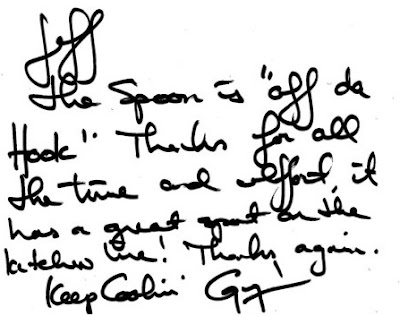 Jeff
The Spoon is "off da
Hook". Thanks for all
the time and effort, it
has a great spot on the
kitchen line! Thanks again.
Keep Cookin' Guy!